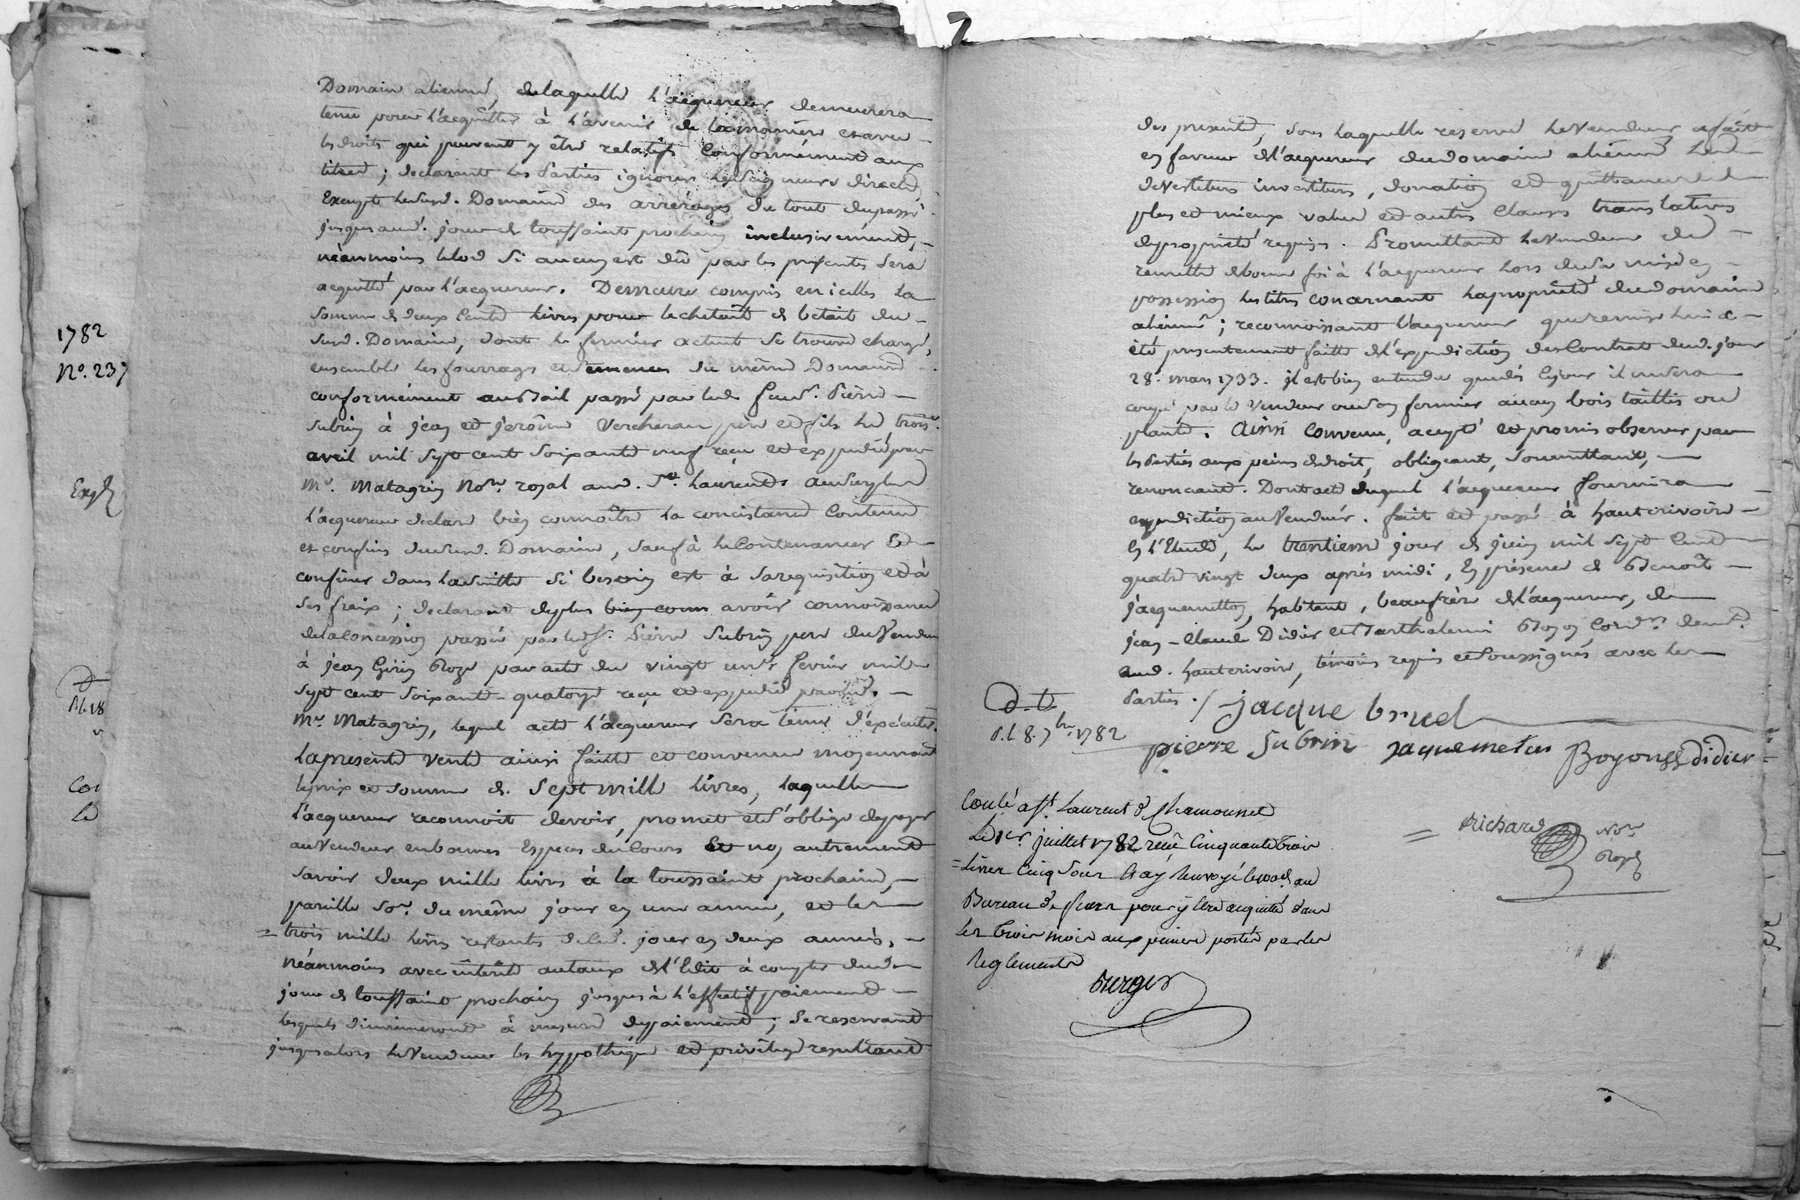 1782
N°. 237
Exp
Domaine aliené, de laquelle l'acquereur demeurera
tenu pour l'acquitter à l'avenir de la maniere et avec
les droits qui peuvent y être relatifs conformément aux
titres ; declarant les Parties ignorer les seigneurs directs,
Exempt led. Domaine des arrérages du tout du passé
jusques aud. jour de toussaint prochain inclusivement,
néanmoins le lod si aucun est dû par les présentes sera
acquitté par l'acquereur. Demeure compris en icelles la
somme de deux Cents livres pour le cheteau de betail du
susd. Domaine, dont le fermier actuel se trouve chargé,
ensemble les fourrages et semences du même Domaine
conformément au Bail passé par led. Pierre
Subrin à jean et jerôme Vercherau pere et fils le trois
avril mil sept cent soixante neuf reçu et expedié par
Me. Matagrin Nore. royal aud. St. Laurent
l'acquereur declare bien connoître la concistance Contenue
et confins dud. Domaine, sauf à le Contenancer et
confiner dans la suitte si besoin est à sa requisition et à
ses fraix ; declarant de plus bien conn avoir connoissance
de la concession passée par led. Sr. Pierre Subrin pere du Vendeur
à jean Giriy Roze par acte du vingt un fevrier mil
sept cent soixante-quatorze reçu et expedié par
Me. Matagrin, lequel acte l'acquereur sera tenu d'executer.
La presente vente ainsi faitte et convenue moyennant
le prix et somme de Sept mille livres, laquelle
l'acquereur reconnoit devoir, promet et s'oblige de payer
au Vendeur en bonnes Especes du Cours et non autrement
savoir deux mille livres à la toussaint prochaine,
pareille Som. du même jour en une année, et les
= trois mille livres restants dud. jour en deux années,
néanmoins avec intérêts au taux de l'Edit à compter dud.
jour de toussaint prochain jusques à l'effectif paiement
lesquels diminueront à mesure de paiement ; se reservant
jusques alors le Vendeur les hypothéque et privilege resultant
des presentes, sous laquelle reserve le Vendeur a fait
en faveur de l'acquereur du domaine aliené les
devestitures investitures, donation et quittance de
plus et mieux value et autres Clauses translatives
de proprieté requises. Promettant le Vendeur de
remettre de bonne foi à l'acquereur lors de sa mise en
possession les titres concernant la proprieté du domaine
aliené ; reconnoissant l'acquereur que remise lui a
été presentement faitte de l'expedition du Contrat dud. jour
28. mars 1733. il est bien entendu que dès ce jour il ne sera
coupé par le Vendeur ou son fermier aucun bois taillis ou
plants. Ainsi convenu, accepté et promis observer par
les Parties aux peines de droit, obligeant, soumettant,
renonçant. Dont acte duquel l'acquereur fournira
expedition au Vendeur. fait et passé à hauterivoire
en l'Etude, le trentieme jour de juin mil sept Cent
quatre vingt deux après midi, En présence de Benoît
jacquemetton, habitant, beaufrère de l'acquereur, de
jean-Claude Didier et Barthelemi Boyon,
aud. hauterivoire, témoins requis et soussignés avec les
Parties. / jacque bruel
d. d.
d. l. 8. 7bre. 1782
pierre Subrin jaquemeton Boyon Didier
= Richard Nore
Royal
Conlé à St. Laurent de Chamousset
Le 1er. juillet 1782 reçu Cinquante trois
= Livres Cinq Sous & ay renvoyé le au
Bureau de pour y être acquitté dans
les trois mois aux peines portés par les
Reglements
Burger